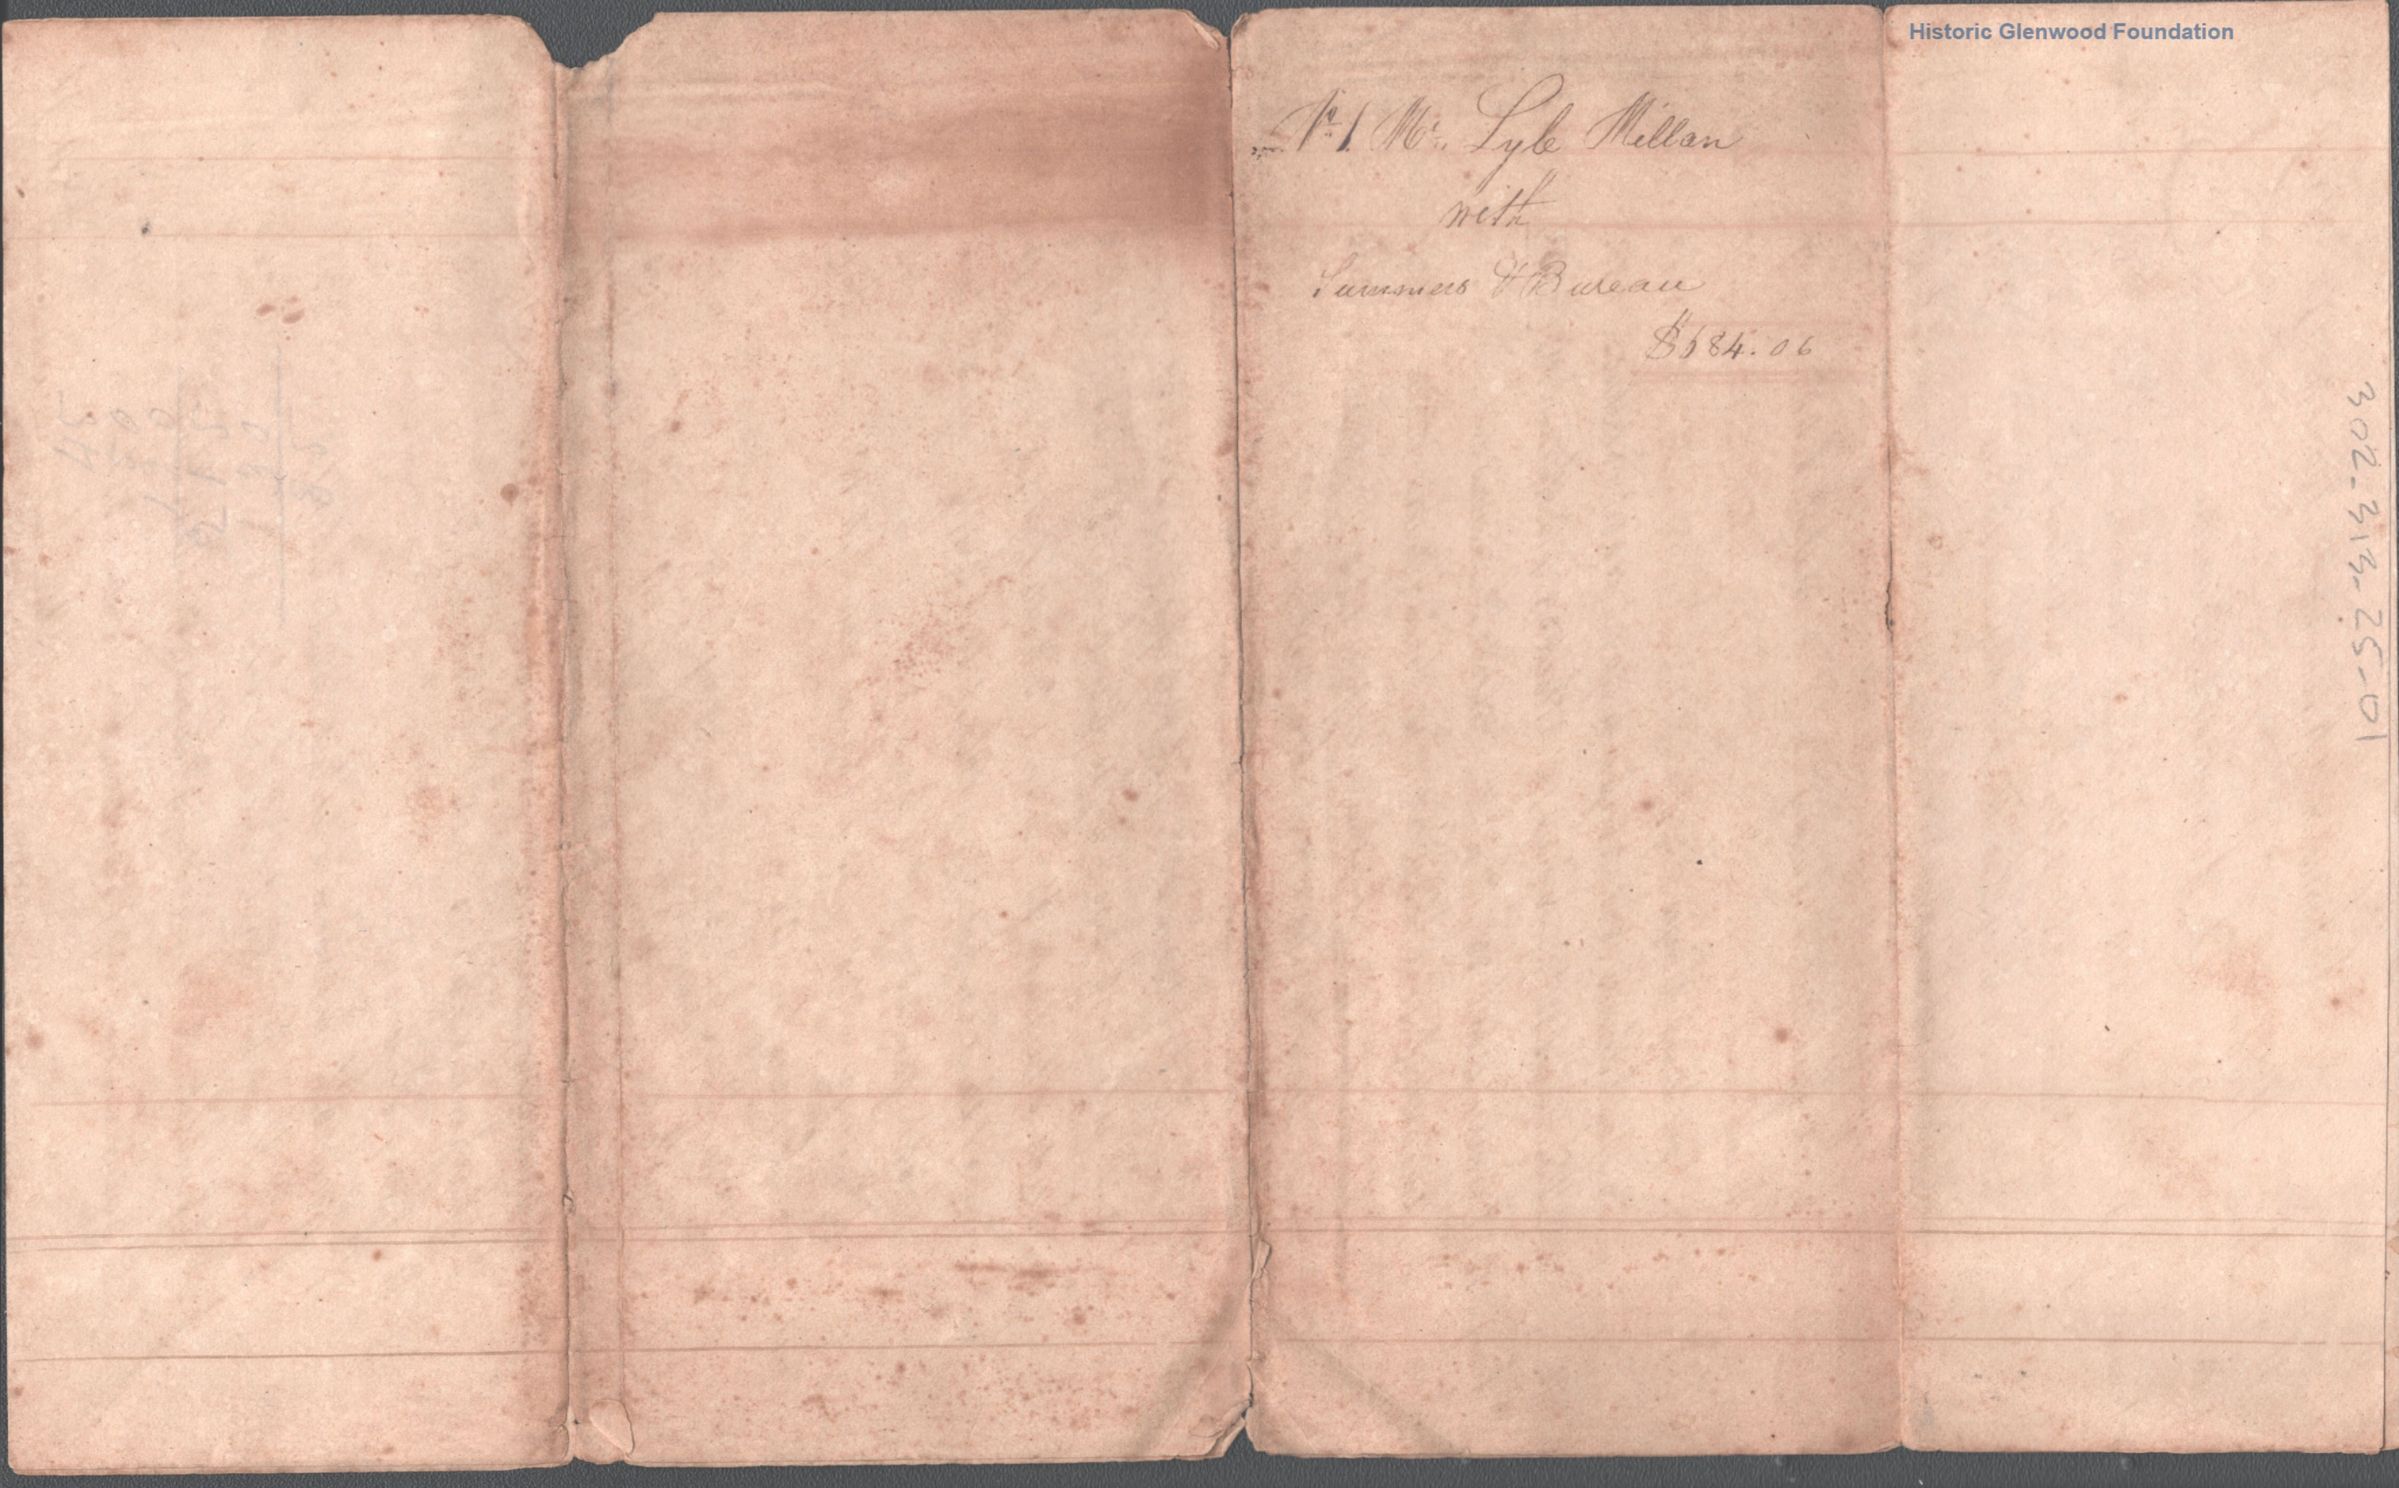 Historic Glenwood Foundation
No 1. Mr. Lyle Millan
with
Summers & Bureau
$684.06
302-313-25-01